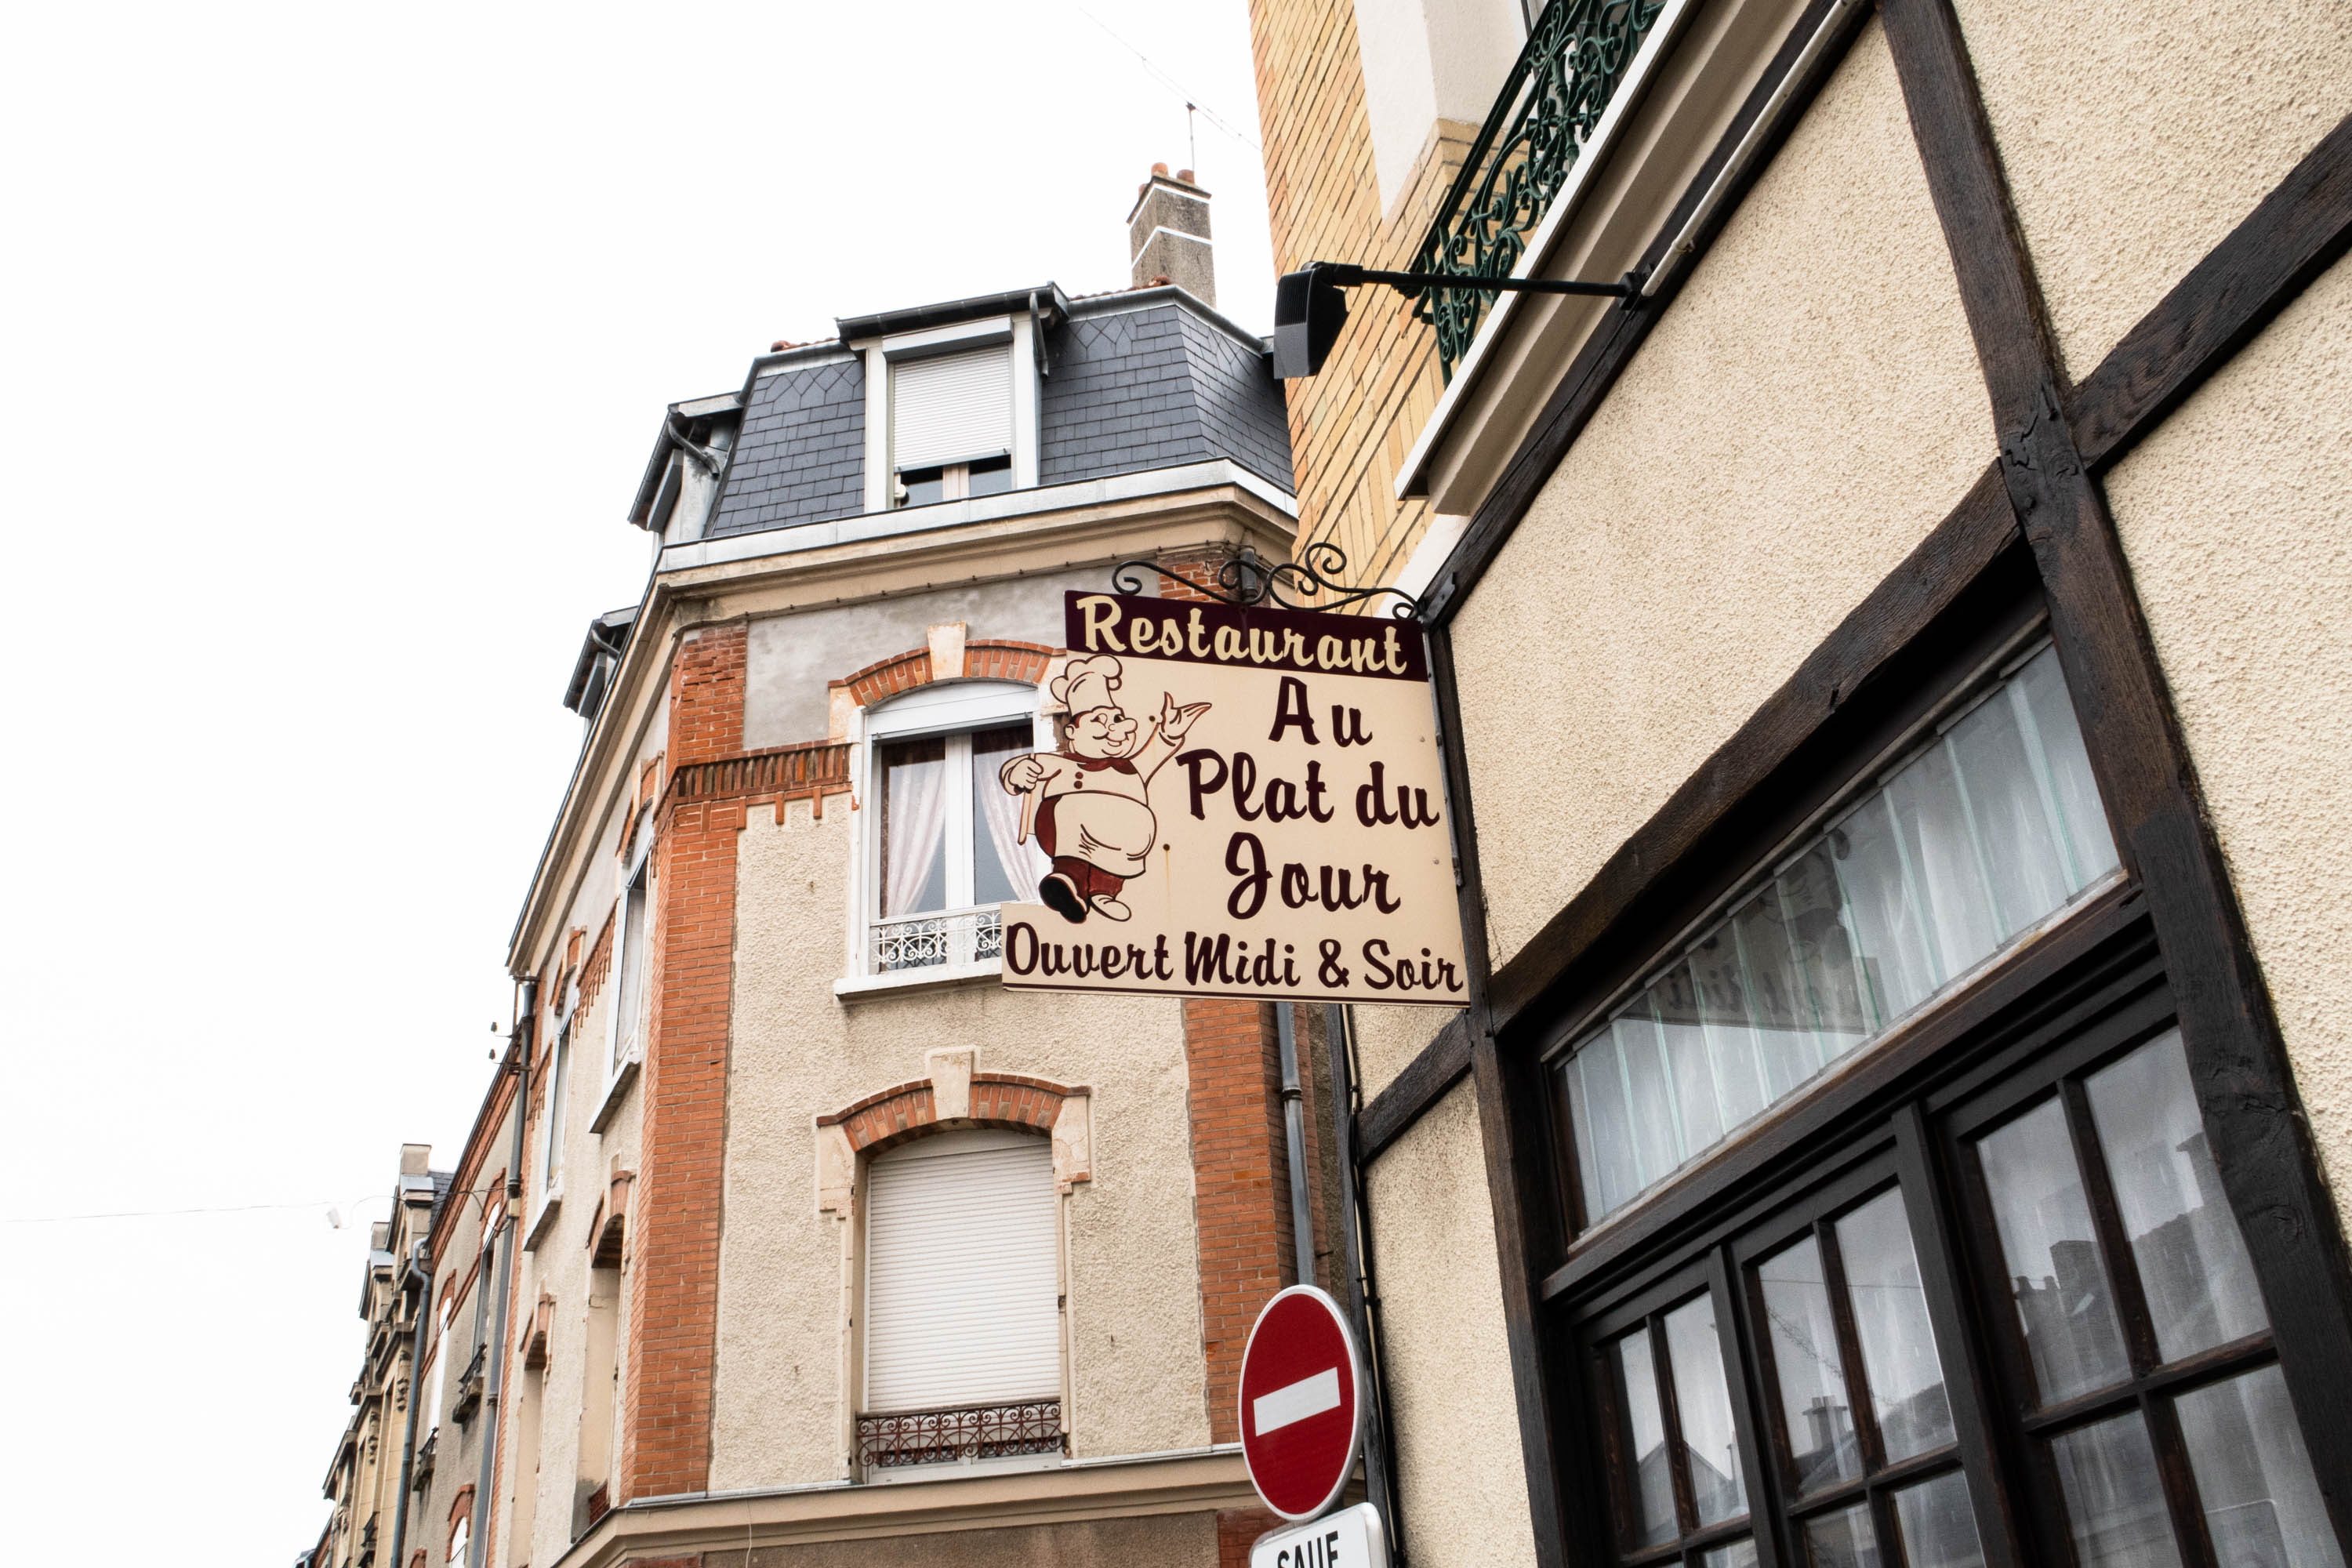 Restaurant
Au
Plat du
Jour
Ouvert Midi & Soir
SAUF